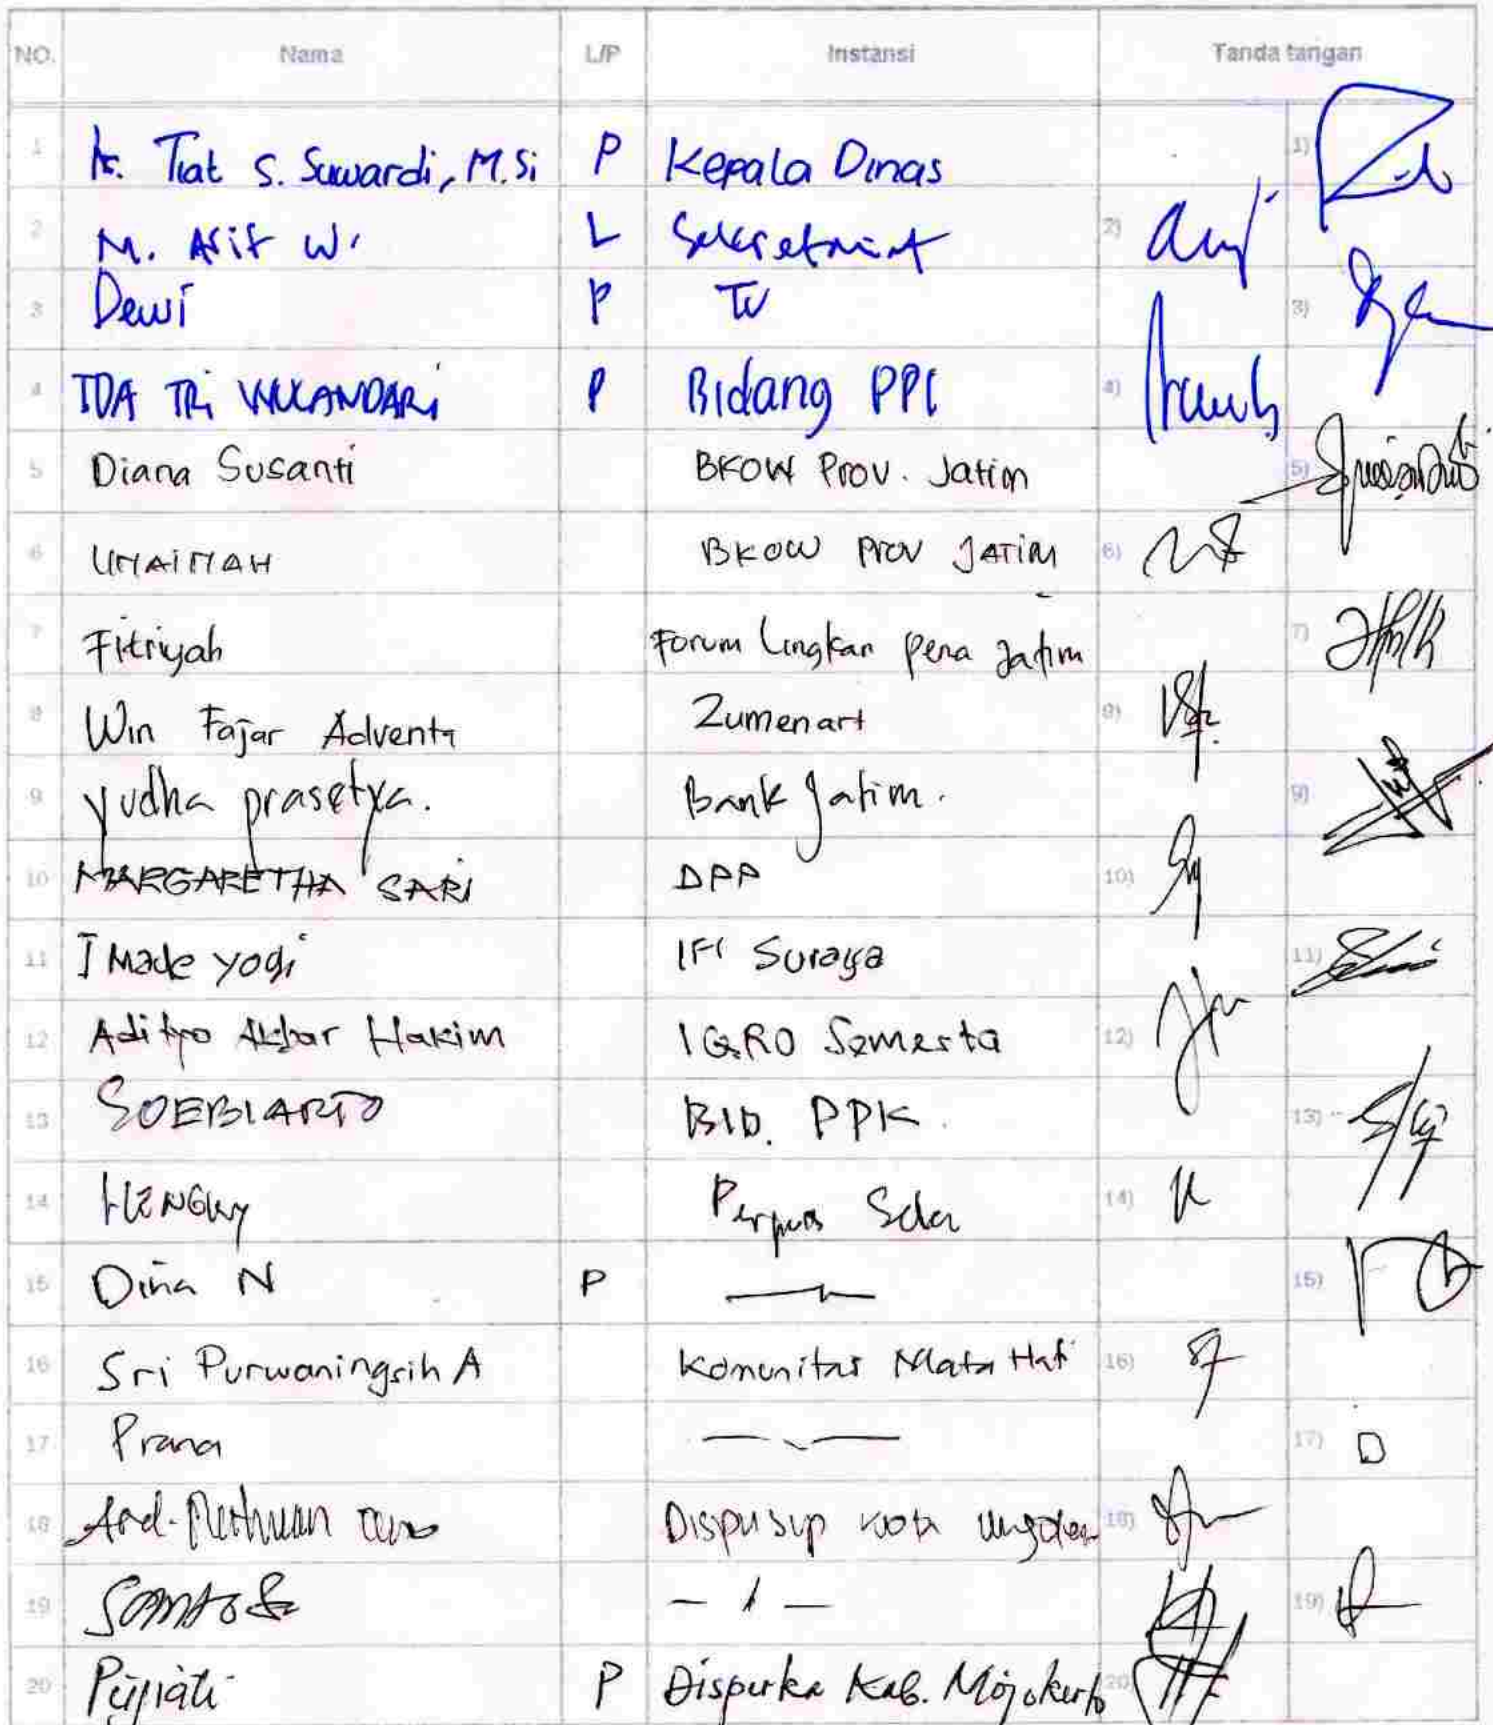 NO. Nama L/P Instansi Tanda tangan
1 Ir. Tiat S. Suwardi, M.Si P Kepala Dinas 1)
2 M. Arif W. L Sekretariat 2)
3 Dewi P TU 3)
4 IDA TRI WULANDARI P Bidang PPI 4)
5 Diana Susanti BKOW Prov. Jatim 5)
6 UMAIMAH BKOW PROV JATIM 6)
7 Fitriyah Forum Lingkar Pena Jatim 7)
8 Win Fajar Adventa Zumenart 8)
9 Yudha prasetya. Bank Jatim. 9)
10 MARGARETHA SARI DPP 10)
11 I Made yogi IFI Suraya 11)
12 Adityo Akbar Hakim IQRO Semesta 12)
13 SOEBIARTO BID. PPK. 13)
14 HENGKY Perpus 14)
15 Dina N P 15)
16 Sri Purwaningsih A Komunitas Mata Hati 16)
17 Prana 17)
18 Dispusip kota 18)
19 19)
20 Pujiati P Disperka Kab. Mojokerto 20)